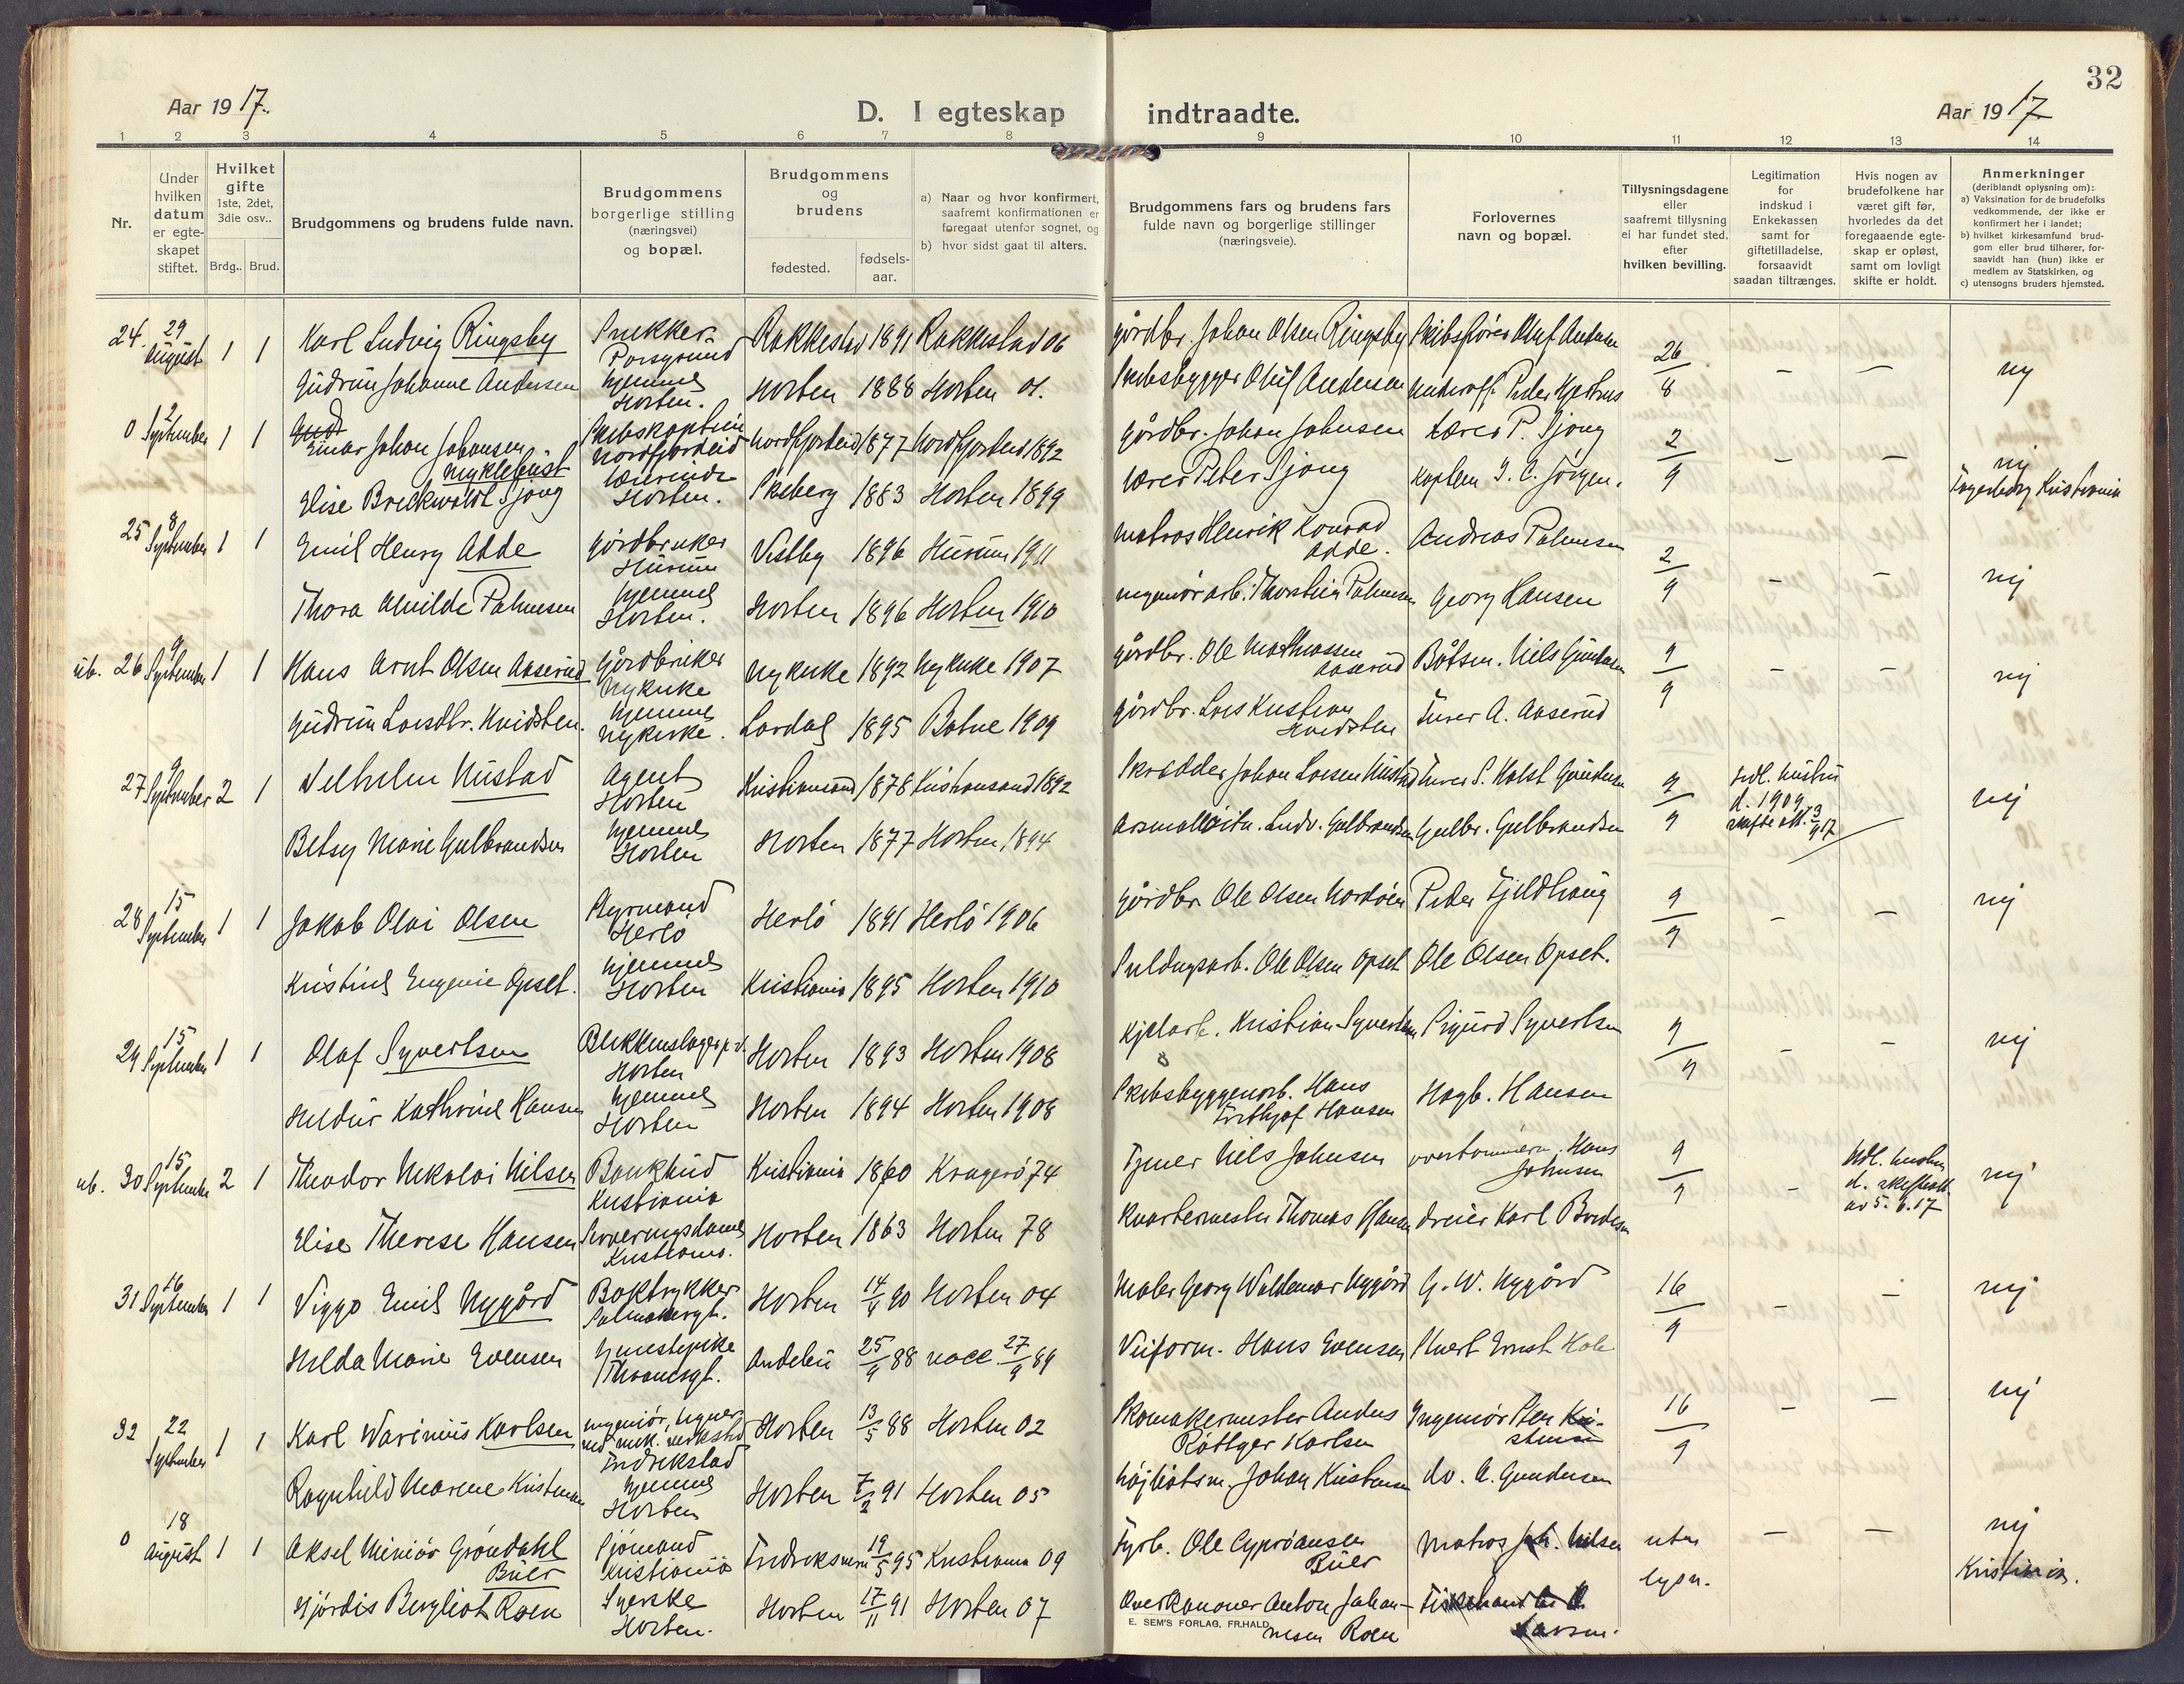 32
Aar 19 17.
D. I egteskap indtraadte.
Aar 19 17
1 2 3 4 5 6 7 8 9 10 11 12 13 14
Nr.
Under hvilken datum er egte- skapet stiftet.
Hvilket gifte 1ste, 2det, 3die osv..
Brdg.. Brud.
Brudgommens og brudens fulde navn.
Brudgommens borgerlige stilling (næringsvei) og bopæl.
Brudgommens og brudens
fødested.
fødsels- aar.
a) Naar og hvor konfirmert, saafremt konfirmationen er foregaat utenfor sognet, og
b) hvor sidst gaat til alters.
Brudgommens fars og brudens fars fulde navn og borgerlige stillinger (næringsveie).
Forlovernes navn og bopæl.
Tillysningsdagene eller saafremt tillysning ei har fundet sted, efter hvilken bevilling.
Legitimation for indskud i Enkekassen samt for giftetilladelse, forsaavidt saadan tiltrænges.
Hvis nogen av brudefolkene har været gift før, hvorledes da det foregaaende egte- skap er opløst, samt om lovligt skifte er holdt.
Anmerkninger (deriblandt oplysning om):
a) Vaksination for de brudefolks vedkommende, der ikke er konfirmert her i landet;
b) hvilket kirkesamfund brud- gom eller brud tilhører, for- saavidt han (hun) ikke er medlem av Statskirken, og
c) utensogns bruders hjemsted.
24. 29 August 1 1 Karl Ludvig Ringsby Snekker Porsgrund Rakkestad 1891 Rakkestad 06 gårdbr. Johan Olsen Ringsby Skibsfører Oluf Andersen 26/8 — — nej
Gudrun Johanne Andersen hjemme Horten. Horten 1888 Horten 01. Skibsbygger Oluf Andersen Underoff. Peder
0 2 September 1 1 Einar Johan Johansen Myklebust Skibskaptein Nordfjordeid Nordfjordeid 1877 Nordfjordeid 1892 gårdbr. Johan Johnsen Lærer P. Sjong 2/9 — — nej
Elise Breckwoldt Sjong lærerinde Horten. Skeberg 1883 Horten 1899 lærer Peter Sjong Kaptein I. C. Jørgen. Fagerborg Kristiania
25 8 September 1 1 Emil Henry Adde gårdbruker Hurum Vestby 1896 Hurum 1911 matros Henrik Konrad Adde. Andreas Palmesen 2/9 — — nej
Thora Alvilde Palmesen hjemme Horten. Horten 1896 Horten 1910 Thorstein Palmesen Georg Hansen
ub. 26 9 September 1 1 Hans Arnt Olsen Aaserud Gårdbruker Nykirke Nykirke 1892 Nykirke 1907 gårdbr. Ole Mathiassen Aaserud Båtsm. Nils Gundersen 9/9 — — nej
Gudrun Larsdtr. Hvidsten. hjemme Nykirke. Lardal 1895 Botne 1909 gårdbr. Lars Kristian Hvidsten Furer A. Aaserud
27 9 September 2 1 Vilhelm Nustad Agent Horten Kristiansand 1878 Kristiansand 1892 Skrædder Johan Larsen Nustad Furer S. Holst Gundersen 9/9 Tidl. hustru d. 1909 skifteatt. 3/9 17 nej
Betsy Marie Gulbrandsen hjemme Horten Horten 1877 Horten 1894 Ludv. Gulbrandsen Gulbr. Gulbrandsen
28 15 September 1 1 Jakob Olai Olsen Styrmand Herlö Herlö 1891 Herlö 1906 gårdbr. Ole Olsen Nordöen Peder Fjeldhaug 9/9 — — nej
Kristine Eugenie Opset. hjemme Horten Kristiania 1895 Horten 1910 Ole Olsen Opset Ole Olsen Opset.
29 15 September 1 1 Olaf Syvertsen Blikkenslager Horten Horten 1893 Horten 1908 Kjelarb. Kristian Syvertsen Sigurd Syvertsen 9/9 — — nej
Hildur Kathrine Hansen hjemme Horten Horten 1894 Horten 1908 Skibsbyggerarb. Hans Frithjof Hansen Hagb. Hansen
ub. 30 15 September 2 1 Theodor Nikolai Nilsen Bankbud Kristiania Kristiania 1860 Kragerö 74 Nils Johnsen Hans Johnsen 9/9 — tidl. hustru d. skifteatt. av 5.6.17 nej
Elise Therese Hansen Serveringsdame Kristiania. Horten 1863 Horten 78 Kvartermester Thomas Hansen dreier Karl
31 16 September 1 1 Viggo Emil Nygård Boktrykker Horten 14/4 90 Horten 04 Maler Georg Waldemar Nygård G. W. Nygård 16/9 — — nej
Hilda Marie Evensen Andebu 25/4 88 vacc 27/9 89 Hans Evensen Ernst
32 22 September 1 1 Karl Warinius Karlsen ingeniör, Fredrikstad Horten 13/5 88 Horten 02 Skomakermester Anders Röttger Karlsen Ingeniör Sten Kristensen 16/9 — — nej
Ragnhild Marene Kristensen hjemme Horten Horten 7/2 91 Horten 05 Johan Kristensen A. Gundersen
0 18 August 1 1 Aksel Miniör Gröndahl Buer Sjömand Kristiania 19/5 95 Kristiania 09 Fyrb. Ole Cypriansen Buer Matros Joh. Nilsen uten lysn. — — nej
Hjördis Bergliot Roen Syerske Horten. Horten 17/11 91 Horten 07 Overkanoner Anton Johan- nesen Roen Larsen. Kristiania.
E. SEM'S FORLAG, FR.HALD